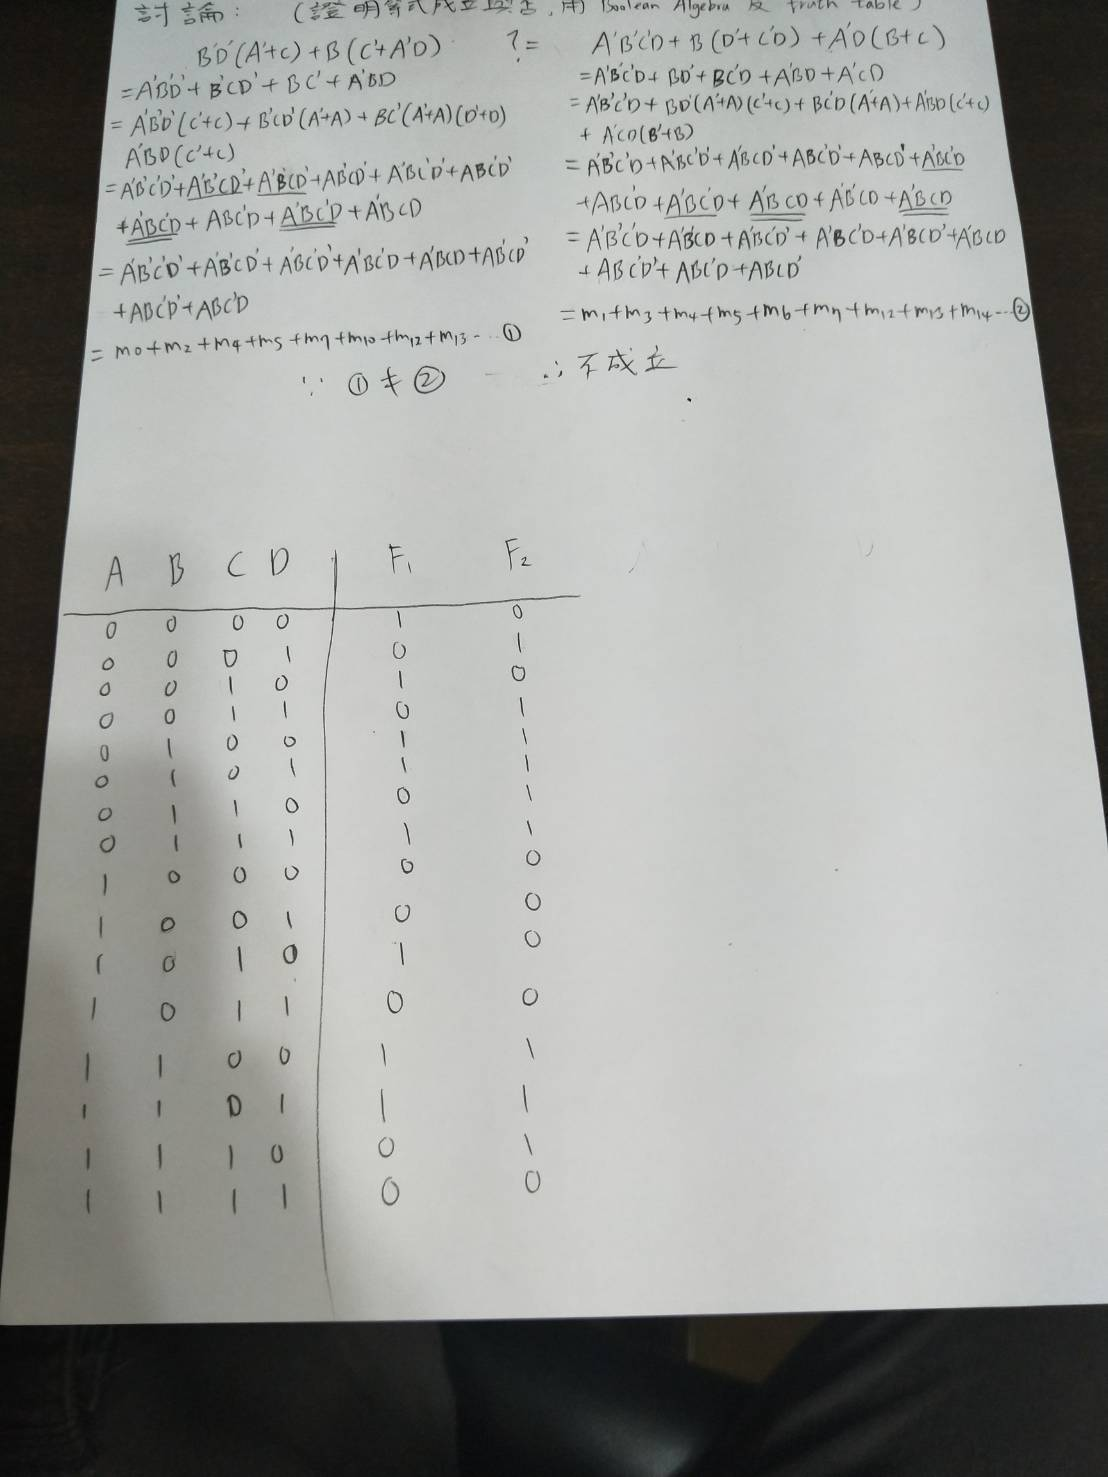 討論: (證明等式成立與否, 用 Boolean Algebra 及 truth table)
B'D'(A'+C)+B(C'+A'D) ?= A'B'C'D+B(D'+C'D)+A'D(B+C)
=A'B'D'+B'CD'+BC'+A'BD
=A'B'D'(C'+C)+B'CD'(A'+A)+BC'(A'+A)(D'+D)
A'BD(C'+C)
=A'B'C'D'+A'B'CD'+A'B'CD'+AB'CD'+A'BC'D'+ABC'D'
+A'BC'D+ABC'D+A'BC'D+A'BCD
=A'B'C'D'+A'B'CD'+A'BC'D'+A'BC'D+A'BCD+AB'CD'
+ABC'D'+ABC'D
=m0+m2+m4+m5+m7+m10+m12+m13-...①
=A'B'C'D+BD'+BC'D+A'BD+A'CD
=A'B'C'D+BD'(A'+A)(C'+C)+BC'D(A'+A)+A'BD(C'+C)
+A'CD(B'+B)
=A'B'C'D+A'BC'D'+A'BCD'+ABC'D'+ABCD'+A'BC'D
+ABC'D+A'BC'D+A'BCD+A'B'CD+A'BCD
=A'B'C'D+A'B'CD+A'BC'D'+A'BC'D+A'BCD'+A'BCD
+ABC'D'+ABC'D+ABCD'
=m1+m3+m4+m5+m6+m7+m12+m13+m14-...②
∵ ①≠② ∴ 不成立
A B C D F1 F2
0 0 0 0 1 0
0 0 0 1 0 1
0 0 1 0 1 0
0 0 1 1 0 1
0 1 0 0 1 1
0 1 0 1 1 1
0 1 1 0 0 1
0 1 1 1 1 1
1 0 0 0 0 0
1 0 0 1 0 0
1 0 1 0 1 0
1 0 1 1 0 0
1 1 0 0 1 1
1 1 0 1 1 1
1 1 1 0 0 1
1 1 1 1 0 0